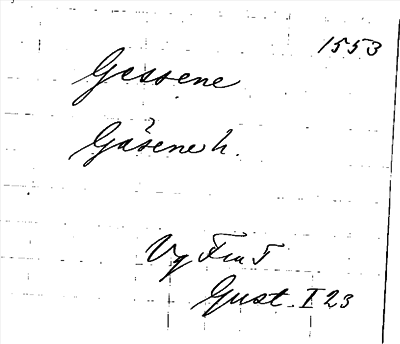 1553
Gessene
Gäsene h.
Vg
Gust. I 23